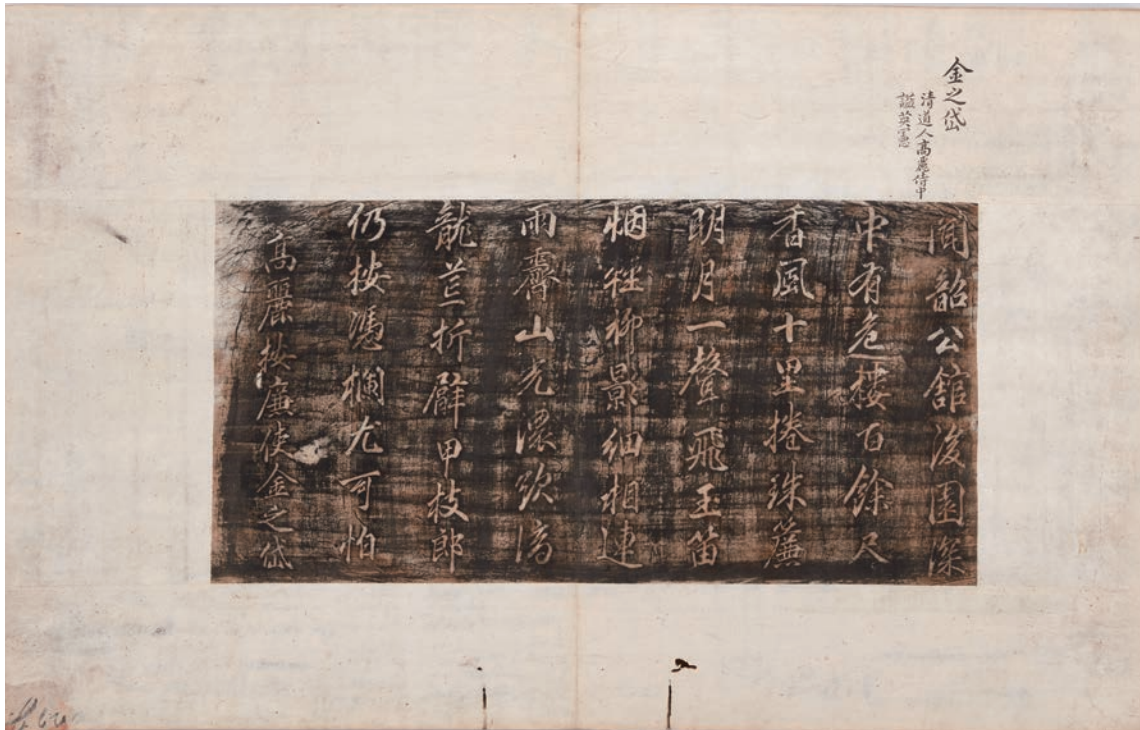 金之岱
清道人高麗侍中
諡英憲
聞韶公舘後園深
中有危樓百餘尺
香風十里捲珠簾
明月一聲飛玉笛
烟輕柳影細相連
雨霽山光濃欲滴
龍荒折臂甲枝郎
仍按憑欄尤可怕
高麗按廉使金之岱